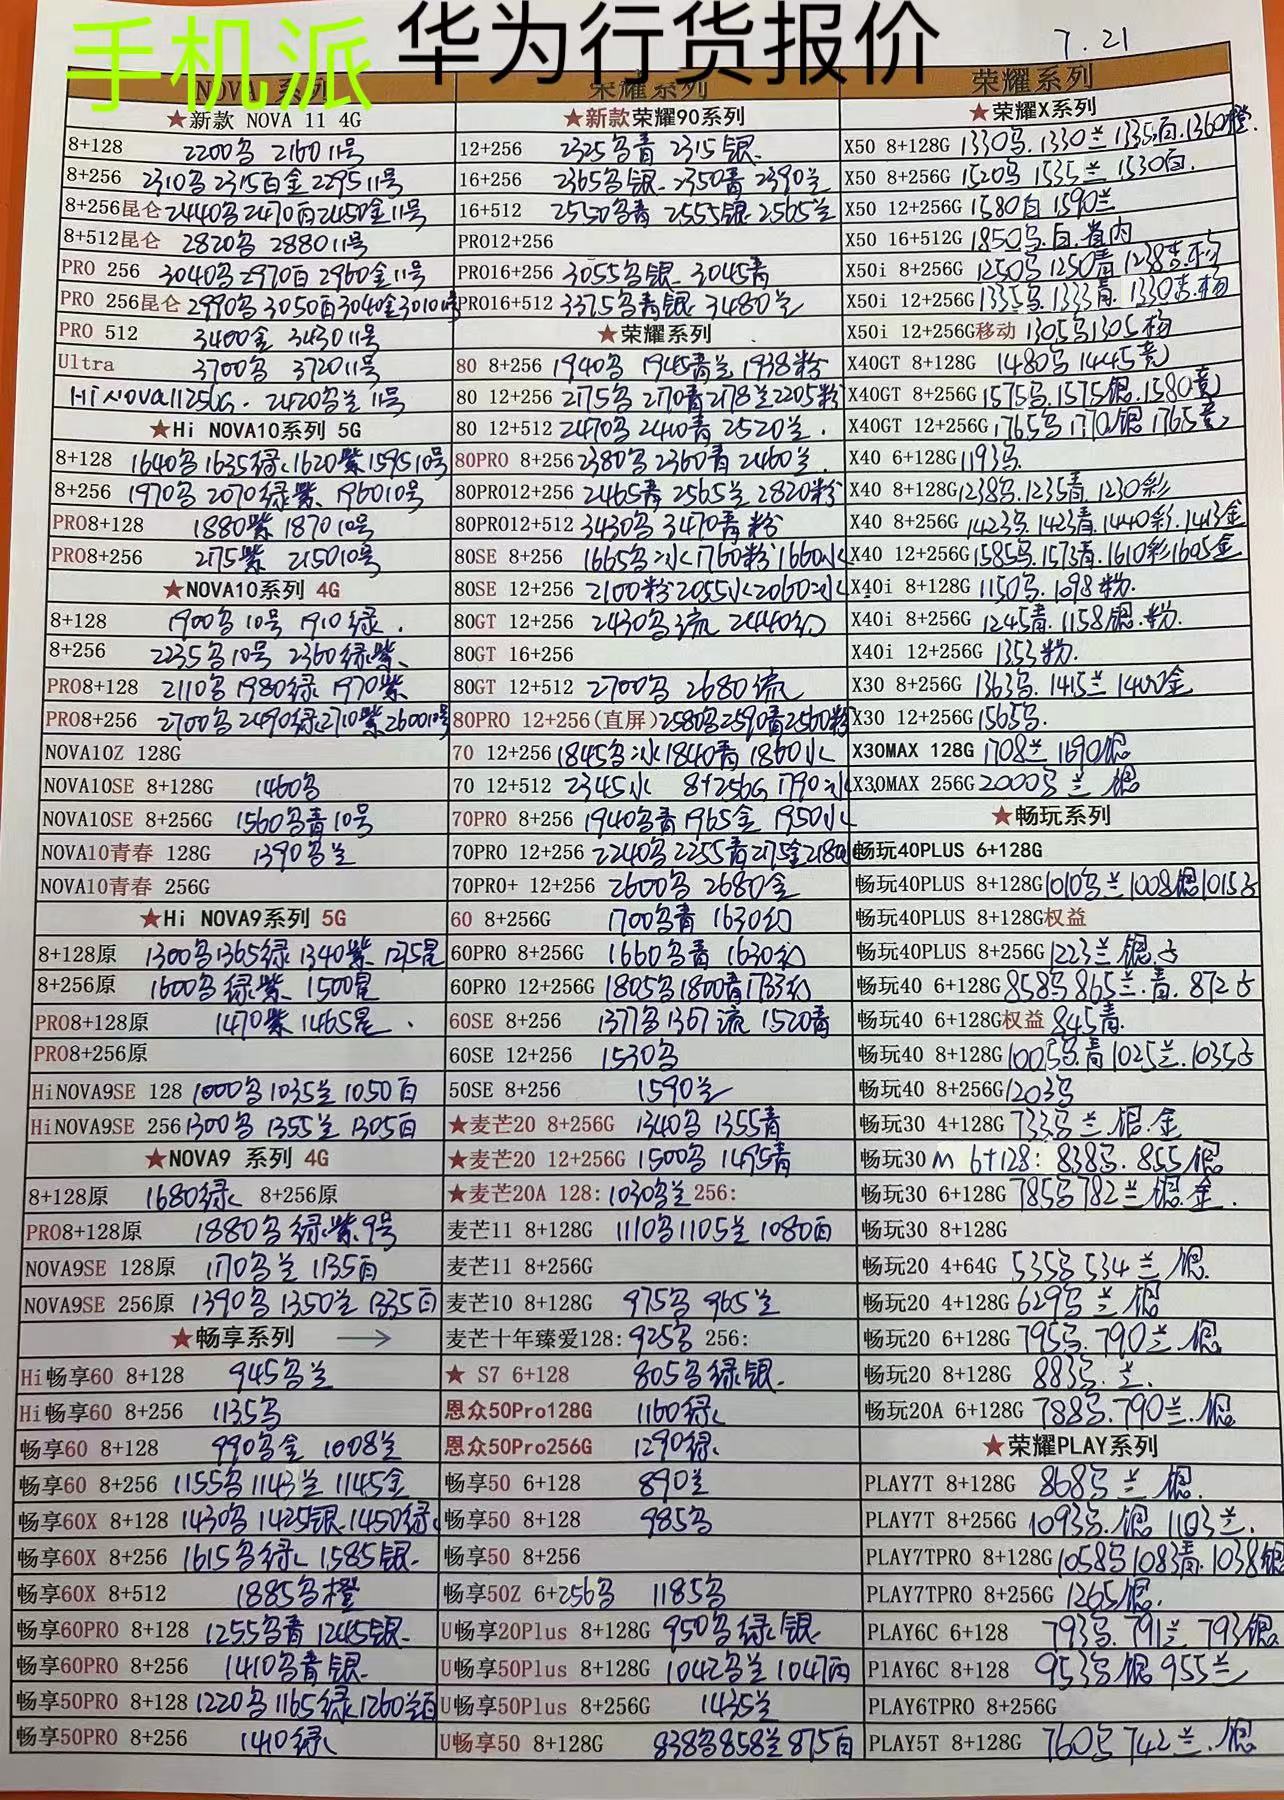 手机派 华为行货报价
7.21
NOVA 系列
★新款 NOVA 11 4G
8+128 2200乌 2160 11号
8+256 2310乌 2315白金 2295 11号
8+256昆仑 2440乌 2470白 2450金 11号
8+512昆仑 2820乌 2880 11号
PRO 256 3040乌 2970白 2960金 11号
PRO 256昆仑 2990乌 3050白 3040金 3010 11号
PRO 512 3400金 3430 11号
Ultra 3700乌 3720 11号
Hi NOVA11 256G. 2420乌兰 11号
★Hi NOVA10系列 5G
8+128 1640乌 1635绿 1620紫 1595 10号
8+256 1970乌 2070绿紫 1960 10号
PRO8+128 1880紫 1870 10号
PRO8+256 2175紫 2150 10号
★NOVA10系列 4G
8+128 1900乌 10号 1910绿.
8+256 2235乌 10号 2360绿紫
PRO8+128 2110乌 1980绿 1970紫
PRO8+256 2700乌 2490绿 2710紫 2600 10号
NOVA10Z 128G
NOVA10SE 8+128G 1460乌
NOVA10SE 8+256G 1560乌青 10号
NOVA10青春 128G 1390乌兰
NOVA10青春 256G
★Hi NOVA9系列 5G
8+128原 1300乌 1365绿 1340紫 1275星
8+256原 1600乌绿紫 1500星
PRO8+128原 1470紫 1465星.
PRO8+256原
HiNOVA9SE 128 1000乌 1035兰 1050白
HiNOVA9SE 256 1300乌 1355兰 1305白
★NOVA9 系列 4G
8+128原 1680绿 8+256原
PRO8+128原 1880乌绿紫 9号
NOVA9SE 128原 1170乌兰 1135白
NOVA9SE 256原 1390乌 1350兰 1335白
★畅享系列 →
Hi畅享60 8+128 945乌兰
Hi畅享60 8+256 1135乌
畅享60 8+128 990乌金 1008兰
畅享60 8+256 1155乌 1143兰 1145金
畅享60X 8+128 1430乌 1425银 1450绿
畅享60X 8+256 1615乌绿 1585银
畅享60X 8+512 1885乌橙
畅享60PRO 8+128 1255乌青 1245银
畅享60PRO 8+256 1410乌青银
畅享50PRO 8+128 1220乌 1165绿 1260兰白
畅享50PRO 8+256 1410绿
荣耀系列
★新款荣耀90系列
12+256 2325乌青 2315银
16+256 2365乌银 2350青 2390兰
16+512 2550乌青 2555银 2565兰
PRO12+256
PRO16+256 3055乌银 3045青
PRO16+512 3375乌青银 3480兰
★荣耀系列
80 8+256 1940乌 1945青兰 1938粉
80 12+256 2175乌 2170青 2178兰 2205粉
80 12+512 2470乌 2410青 2520兰.
80PRO 8+256 2380乌 2360青 2460兰
80PRO12+256 2465青 2565兰 2820粉
80PRO12+512 3430乌 3470青粉
80SE 8+256 1665乌冰 1760粉 1660水
80SE 12+256 2100粉 2055水 2060冰
80GT 12+256 2430乌流 2440幻
80GT 16+256
80GT 12+512 2700乌 2680流
80PRO 12+256(直屏) 2580乌 2590青 2560粉
70 12+256 1845乌冰 1840青 1860水
70 12+512 2345水 8+256G 1790冰
70PRO 8+256 1940乌青 1965金 1950水
70PRO 12+256 2240乌 2255青 2175金 2180
70PRO+ 12+256 2600乌 2680金
60 8+256G 1700乌青 1630幻
60PRO 8+256G 1660乌青 1630幻
60PRO 12+256G 1805乌 1800青 1733幻
60SE 8+256 1377乌 1367流 1520青
60SE 12+256 1530乌
50SE 8+256 1590兰
★麦芒20 8+256G 1340乌 1355青
★麦芒20 12+256G 1500乌 1495青
★麦芒20A 128: 1030乌兰 256:
麦芒11 8+128G 1110乌 1105兰 1080白
麦芒11 8+256G
麦芒10 8+128G 975乌 965兰
麦芒十年臻爱128: 925乌 256:
★ S7 6+128 805乌绿银
恩众50Pro128G 1160绿
恩众50Pro256G 1290绿
畅享50 6+128 890兰
畅享50 8+128 985乌
畅享50 8+256
畅享50Z 6+256乌 1185乌
U畅享20Plus 8+128G 950乌绿银
U畅享50Plus 8+128G 1042乌兰 1047白
U畅享50Plus 8+256G 1435兰
U畅享50 8+128G 838乌 858兰 875白
荣耀系列
★荣耀X系列
X50 8+128G 1330乌.1330兰 1335白.1360橙.
X50 8+256G 1520乌 1535兰 1530白.
X50 12+256G 1580白 1590兰
X50 16+512G 1850乌.白.省内
X50i 8+256G 1250乌 1250青 1238杏.粉
X50i 12+256G 1335乌 1333青. 1330杏.粉
X50i 12+256G移动 1305乌 1305粉
X40GT 8+128G 1480乌 1445竞
X40GT 8+256G 1575乌.1575银.1580竞
X40GT 12+256G 1765乌 1770银 1765竞
X40 6+128G 1193乌
X40 8+128G 1238乌.1235青.1230彩
X40 8+256G 1423乌.1423青.1440彩.1413金
X40 12+256G 1585乌.1573青.1610彩 1605金
X40i 8+128G 1150乌.1098粉.
X40i 8+256G 1245青.1158银.粉.
X40i 12+256G 1353粉.
X30 8+256G 1363乌.1415兰 1400金
X30 12+256G 1565乌.
X30MAX 128G 1708兰 1690银
X30MAX 256G 2000乌 兰 银
★畅玩系列
畅玩40PLUS 6+128G
畅玩40PLUS 8+128G 1010乌兰 1008银 1015
畅玩40PLUS 8+128G权益
畅玩40PLUS 8+256G 1223兰.银.
畅玩40 6+128G 858乌 865兰.青. 872
畅玩40 6+128G权益 845青.
畅玩40 8+128G 1005乌.青 1025兰.1035
畅玩40 8+256G 1203乌
畅玩30 4+128G 733乌 兰.银.金
畅玩30 M 6+128: 838乌. 855银
畅玩30 6+128G 785乌 782兰 银.金.
畅玩30 8+128G
畅玩20 4+64G 535乌 534兰 银.
畅玩20 4+128G 629乌 兰 银
畅玩20 6+128G 795乌.790兰.银
畅玩20 8+128G 883乌. 兰.
畅玩20A 6+128G 788乌.790兰.银
★荣耀PLAY系列
PLAY7T 8+128G 868乌 兰 银.
PLAY7T 8+256G 1093乌.银 1103兰.
PLAY7TPRO 8+128G 1058乌 1083青.1038银
PLAY7TPRO 8+256G 1265银.
PLAY6C 6+128 793乌.791兰 793银
PlAY6C 8+128 953乌银 955兰
PLAY6TPRO 8+256G
PLAY5T 8+128G 760乌 742兰.银